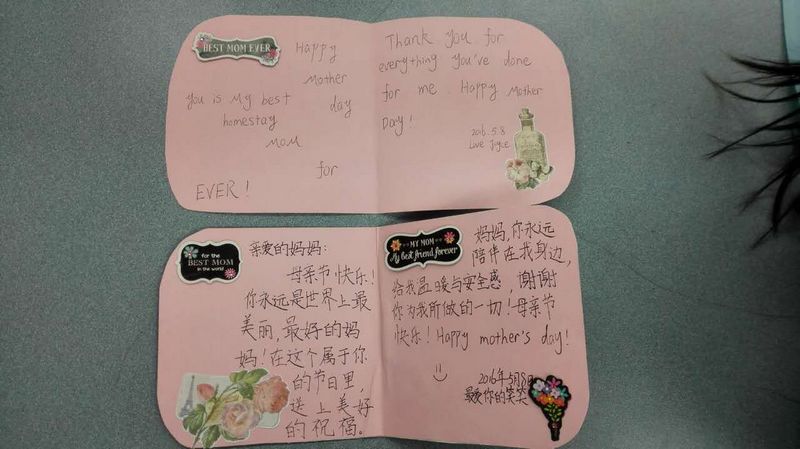 BEST MOM EVER
Happy
Mother
you is my best day
homestay
MOM
for
EVER!
Thank you for
everything you've done
for me. Happy Mother
Day!
2016.5.8
Love Joyce
for the
BEST MOM
in the world
亲爱的妈妈:
母亲节快乐!
你永远是世界上最
美丽,最好的妈
妈!在这个属于你
的节日里,
送上美好
的祝福。
MY MOM
My best friend forever
妈妈,你永远
陪伴在我身边,
给我温暖与安全感,谢谢
你为我所做的一切!母亲节
快乐!Happy mother's day!
2016年5月8日
最爱你的笑笑